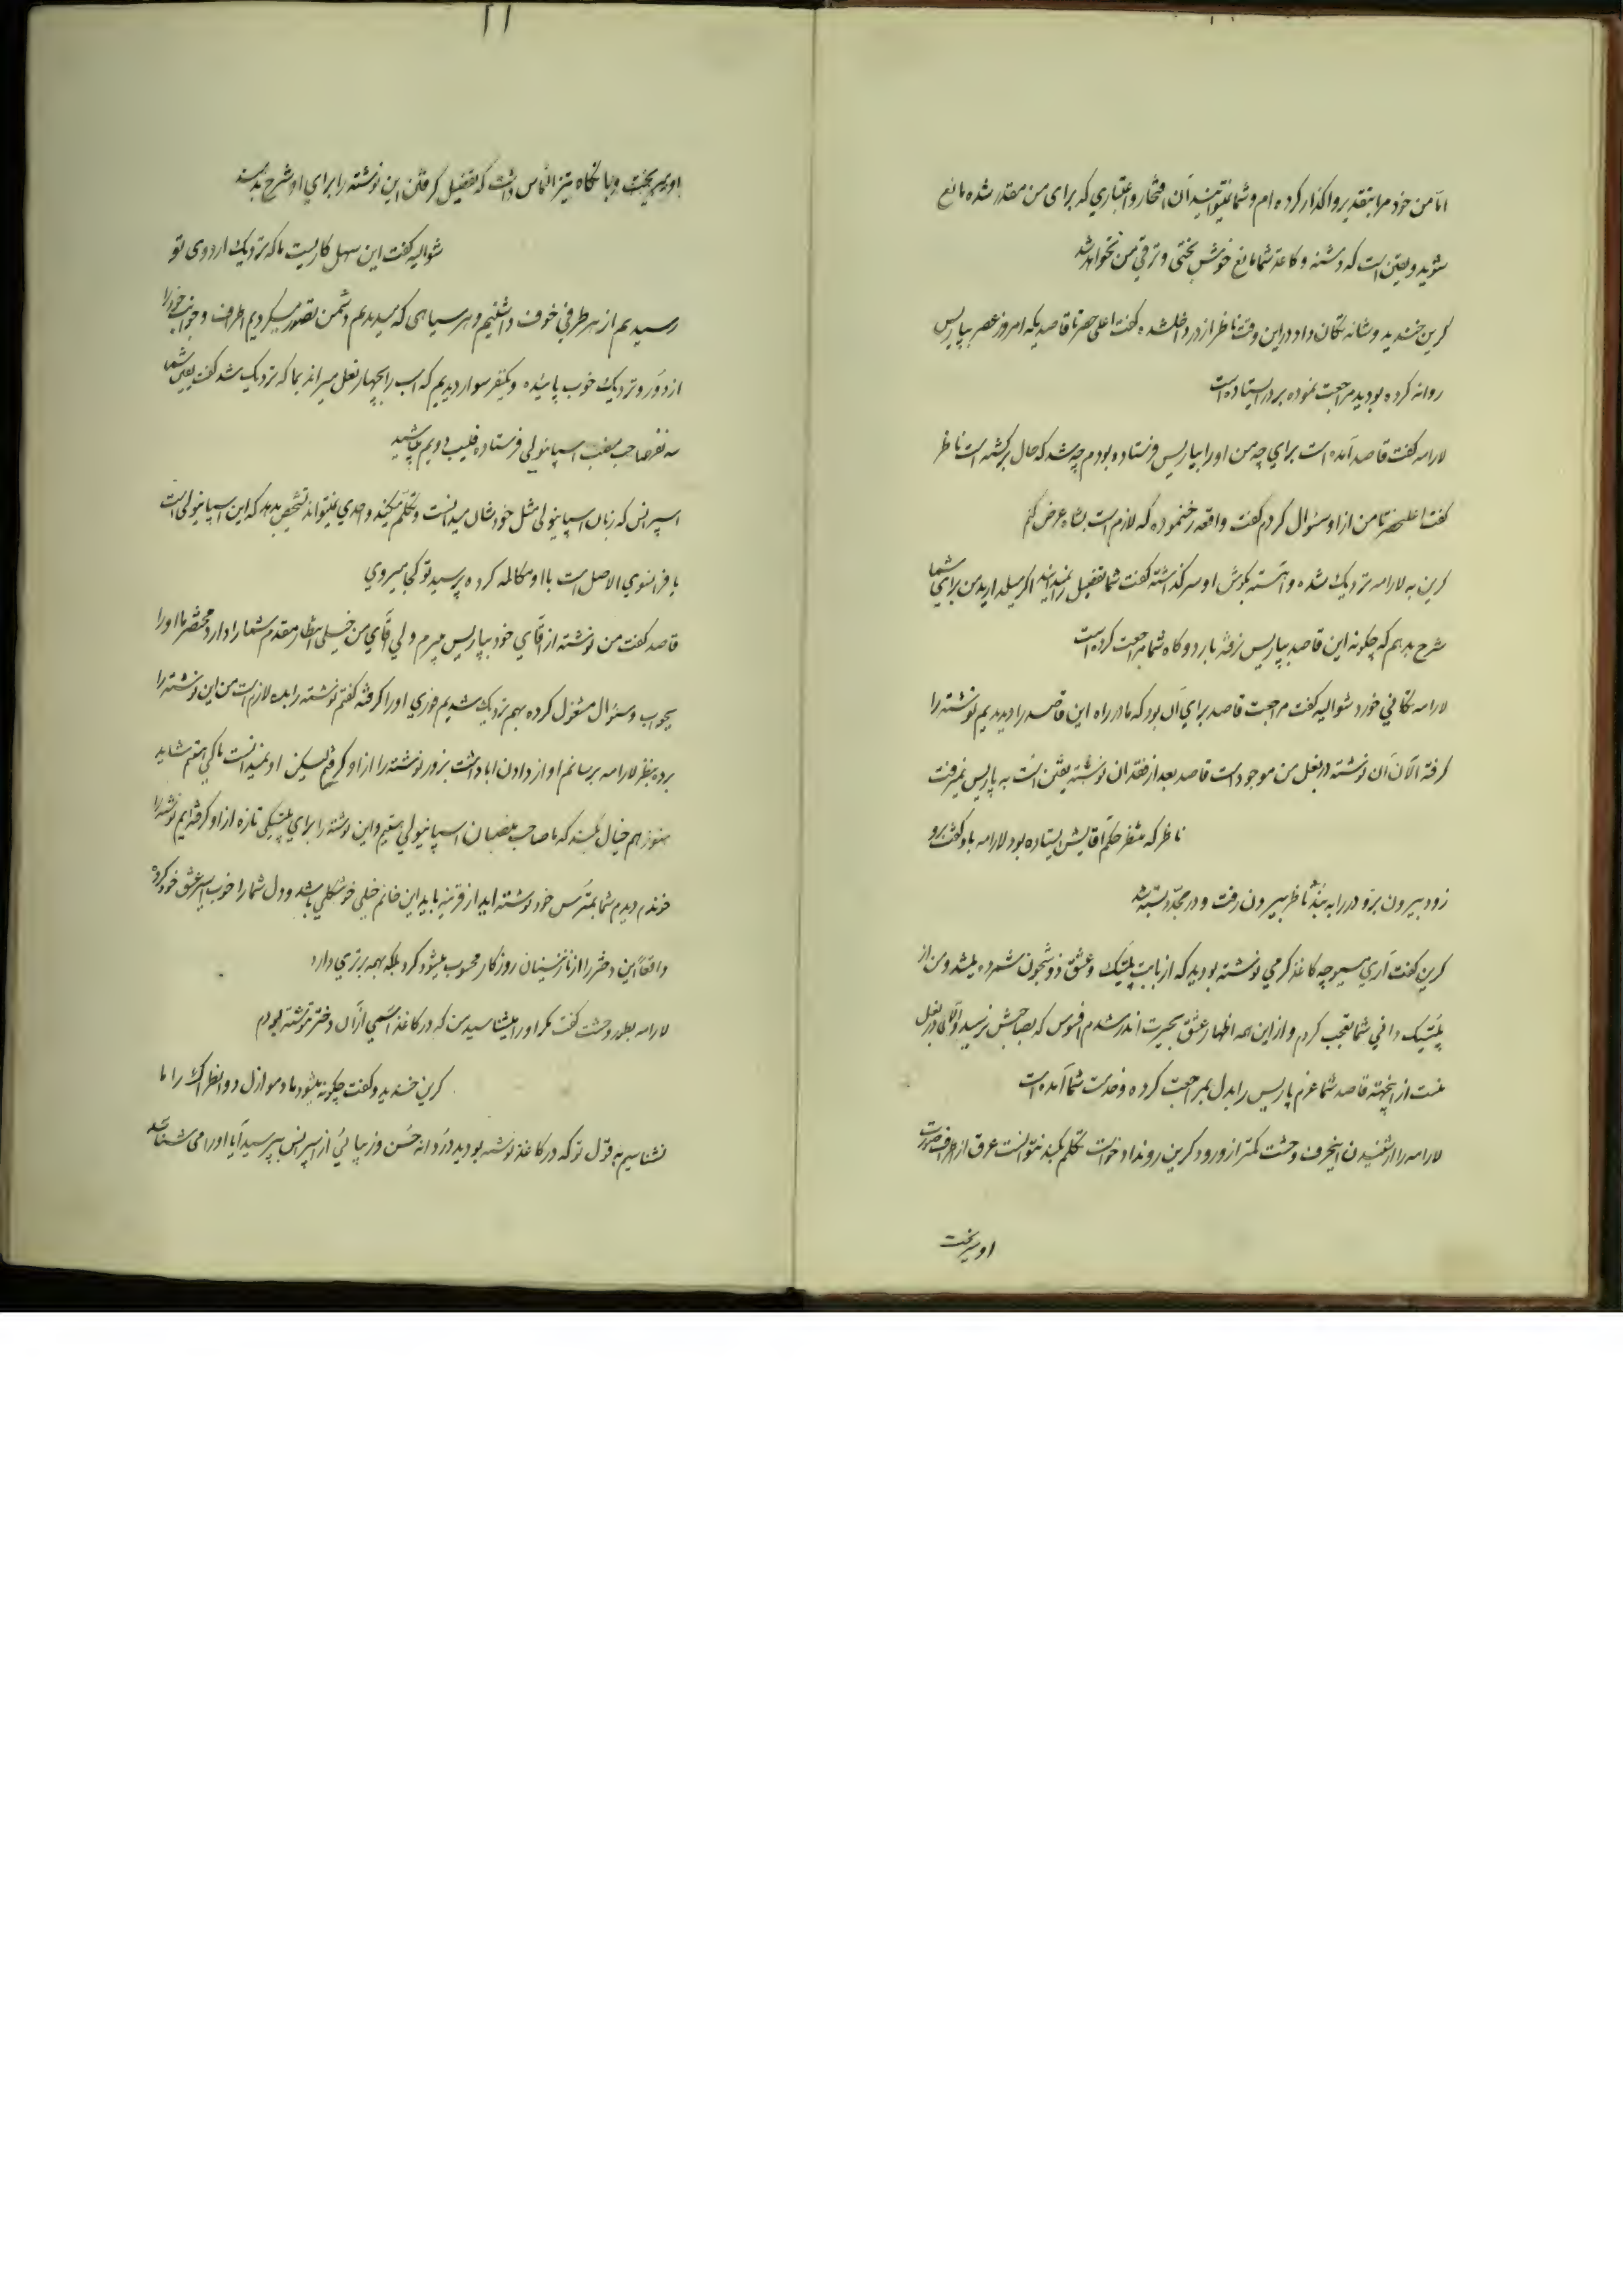 اما من خود مرا بتقدیر واگذار کرده ام و شما نمیتوانید آن افتخار و اعتباری که برای من مقدر شده مانع
شوید و یقین است که دشنه و کاغذ شما مانع خوش بختی و ترقی من نخواهد شد
کرین خندید و شانه تکان داد در این وقت ناظر از در داخل شده گفت اعلی حضرتا قاصدیکه امروز عصر بپاریس
روانه کرده بودید مراجعت نموده بر در ایستاده است
لارامه گفت قاصد آمده است برای چه من او را بپاریس فرستاده بودم چه شد که حال برگشته است ناظر
گفت اعلیحضرتا من از او سئوال کردم گفت واقعه رخ نموده که لازم است بشاه عرض کنم
کرین به لارامه نزدیک شده و آهسته بگوش او سر گذاشته گفت شما تفصیل را نمیدانید اگر میل دارید من برای شما
شرح بدهم که چگونه این قاصد بپاریس نرفته باردوگاه شما مراجعت کرده است
لارامه تکانی خورد شوالیه گفت مراجعت قاصد برای آن بود که ما در راه این قاصد را دیدیم نوشته را
گرفته الآن آن نوشته در بغل من موجود است قاصد بعد از فقدان نوشته یقین است به پاریس نمیرفت
ناظر که منتظر حکم آقایش ایستاده بود لارامه باو گفت برو
زود بیرون برو در را به بند ناظر بیرون رفت و در مجدد بسته شد
کرین گفت آری مسیو چه کاغذ گرمی نوشته بودید که از بابت پلتیک و عشق ذوشجون شمرده میشد و من از
پلتیک دانی شما تعجب کردم و از این همه اظهار عشق بحیرت اندر شدم افسوس که بصاحبش نرسید و الآن در بغل
منست از اینجهته قاصد شما عزم پاریس را بدل بمراجعت کرده و خدمت شما آمده است
لارامه را از شنیدن اینحرف وحشت کمتر از ورود کرین رونداد خواست تکلم بکند نتوانست عرق از اطراف صورت
او میریخت
11
او میریخت و با نگاه تیز التماس داشت که تفصیل گرفتن این نوشته را برای او شرح بدهند
شوالیه گفت این سهل کاریست ما که نزدیک اردوی تو
رسیدیم از هر طرفی خوف داشتیم و هر سیاهی که میدیدیم دشمن تصور میکردیم اطراف و جوانب خود را
از دور و نزدیک خوب پائیده و یکنفر سوار دیدیم که اسب را بچهار نعل میراند بما که نزدیک شد گفت یقین شما
سه نفر صاحب منصب اسپانیولی فرستاده فلیپ دویم میباشید
اسپرانس که زبان اسپانیولی مثل خودشان میدانست و تکلم میکند و احدی نمیتواند تشخیص بدهد که این اسپانیولی است
یا فرانسوی الاصل است با او مکالمه کرده پرسید تو کجا میروی
قاصد گفت من نوشته از آقای خود بپاریس میبرم ولی آقای من خیلی انتظار مقدم شما را دارد مختصر ما او را
بجواب و سئوال مشغول کرده بهم نزدیک شدیم فوری او را گرفته گفتم نوشته را بده لازم است من این نوشته را
برده بنظر لارامه برسانم او از دادن ابا داشت بزور نوشته را از او گرفتم لیکن او نمیدانست ما کی هستیم شاید
هنوز هم خیال بکند که ما صاحب منصبان اسپانیولی هستیم و این نوشته را برای پلتیکی تازه از او گرفته ایم نوشته را
خوندم دیدم شما بمترس خود نوشته اید از قرینه باید این خانم خیلی خوشگلی باشد و دل شما را خوب اسیر عشق خود کرده
واقعاً این دختر را از نازنینان روزگار محسوب میشود کرد بلکه بهمه برتری دارد
لارامه بطور وحشت گفت مگر او را میشناسید من که در کاغذ اسمی از آن دختر ننوشته بودم
کرین خندید و گفت چگونه میشود مادموازل دوانطراک را ما
نشناسیم به قول تو که در کاغذ نوشته بودید دردانه حسن و زیبائی از اسپرانس بپرسید آیا او را می شناسد